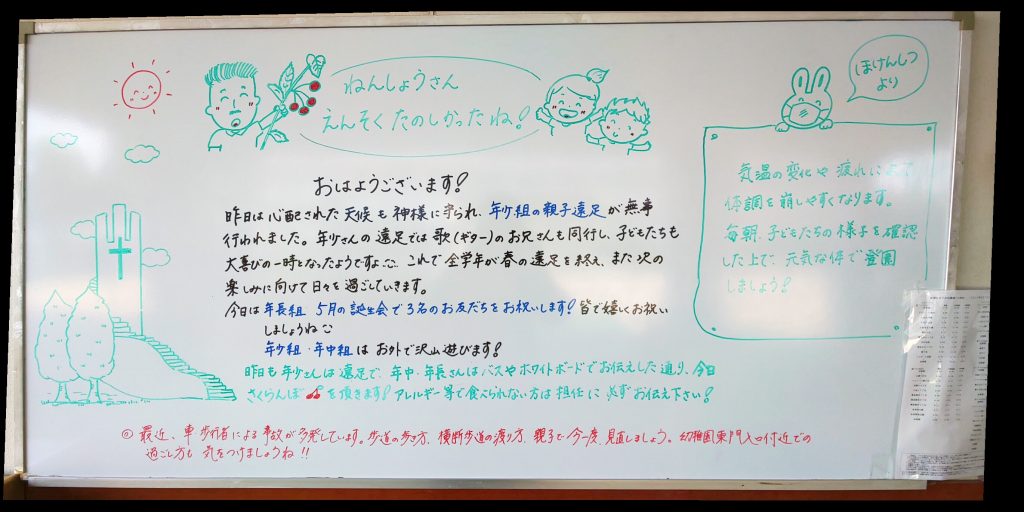 ねんしょうさん
えんそくたのしかったね!
ほけんしつ
より
おはようございます!
昨日は心配された天候も神様に守られ、年少組の親子遠足が無事
行われました。年少さんの遠足では歌(ギター)のお兄さんも同行し、子どもたちも
大喜びの一時となったようですよ。これで全学年が春の遠足を終え、また次の
楽しみに向けて日々を過ごしていきます。
今日は年長組 5月の誕生会で3名のお友だちをお祝いします!皆で嬉しくお祝い
しましょうね
年少組・年中組はお外で沢山遊びます!
昨日も年少さんは遠足で、年中・年長さんはバスやホワイトボードでお伝えした通り、今日
さくらんぼを頂きます!アレルギー等で食べられない方は担任に必ずお伝え下さい!
◎ 最近、車 歩行者による事故が多発しています。歩道の歩き方、横断歩道の渡り方、親子で今一度、見直しましょう。幼稚園東門入口付近での
過ごし方も気をつけましょうね!!
気温の変化や疲れによって
体調を崩しやすくなります。
毎朝、子どもたちの様子を確認
した上で、元気な体で登園
しましょう!